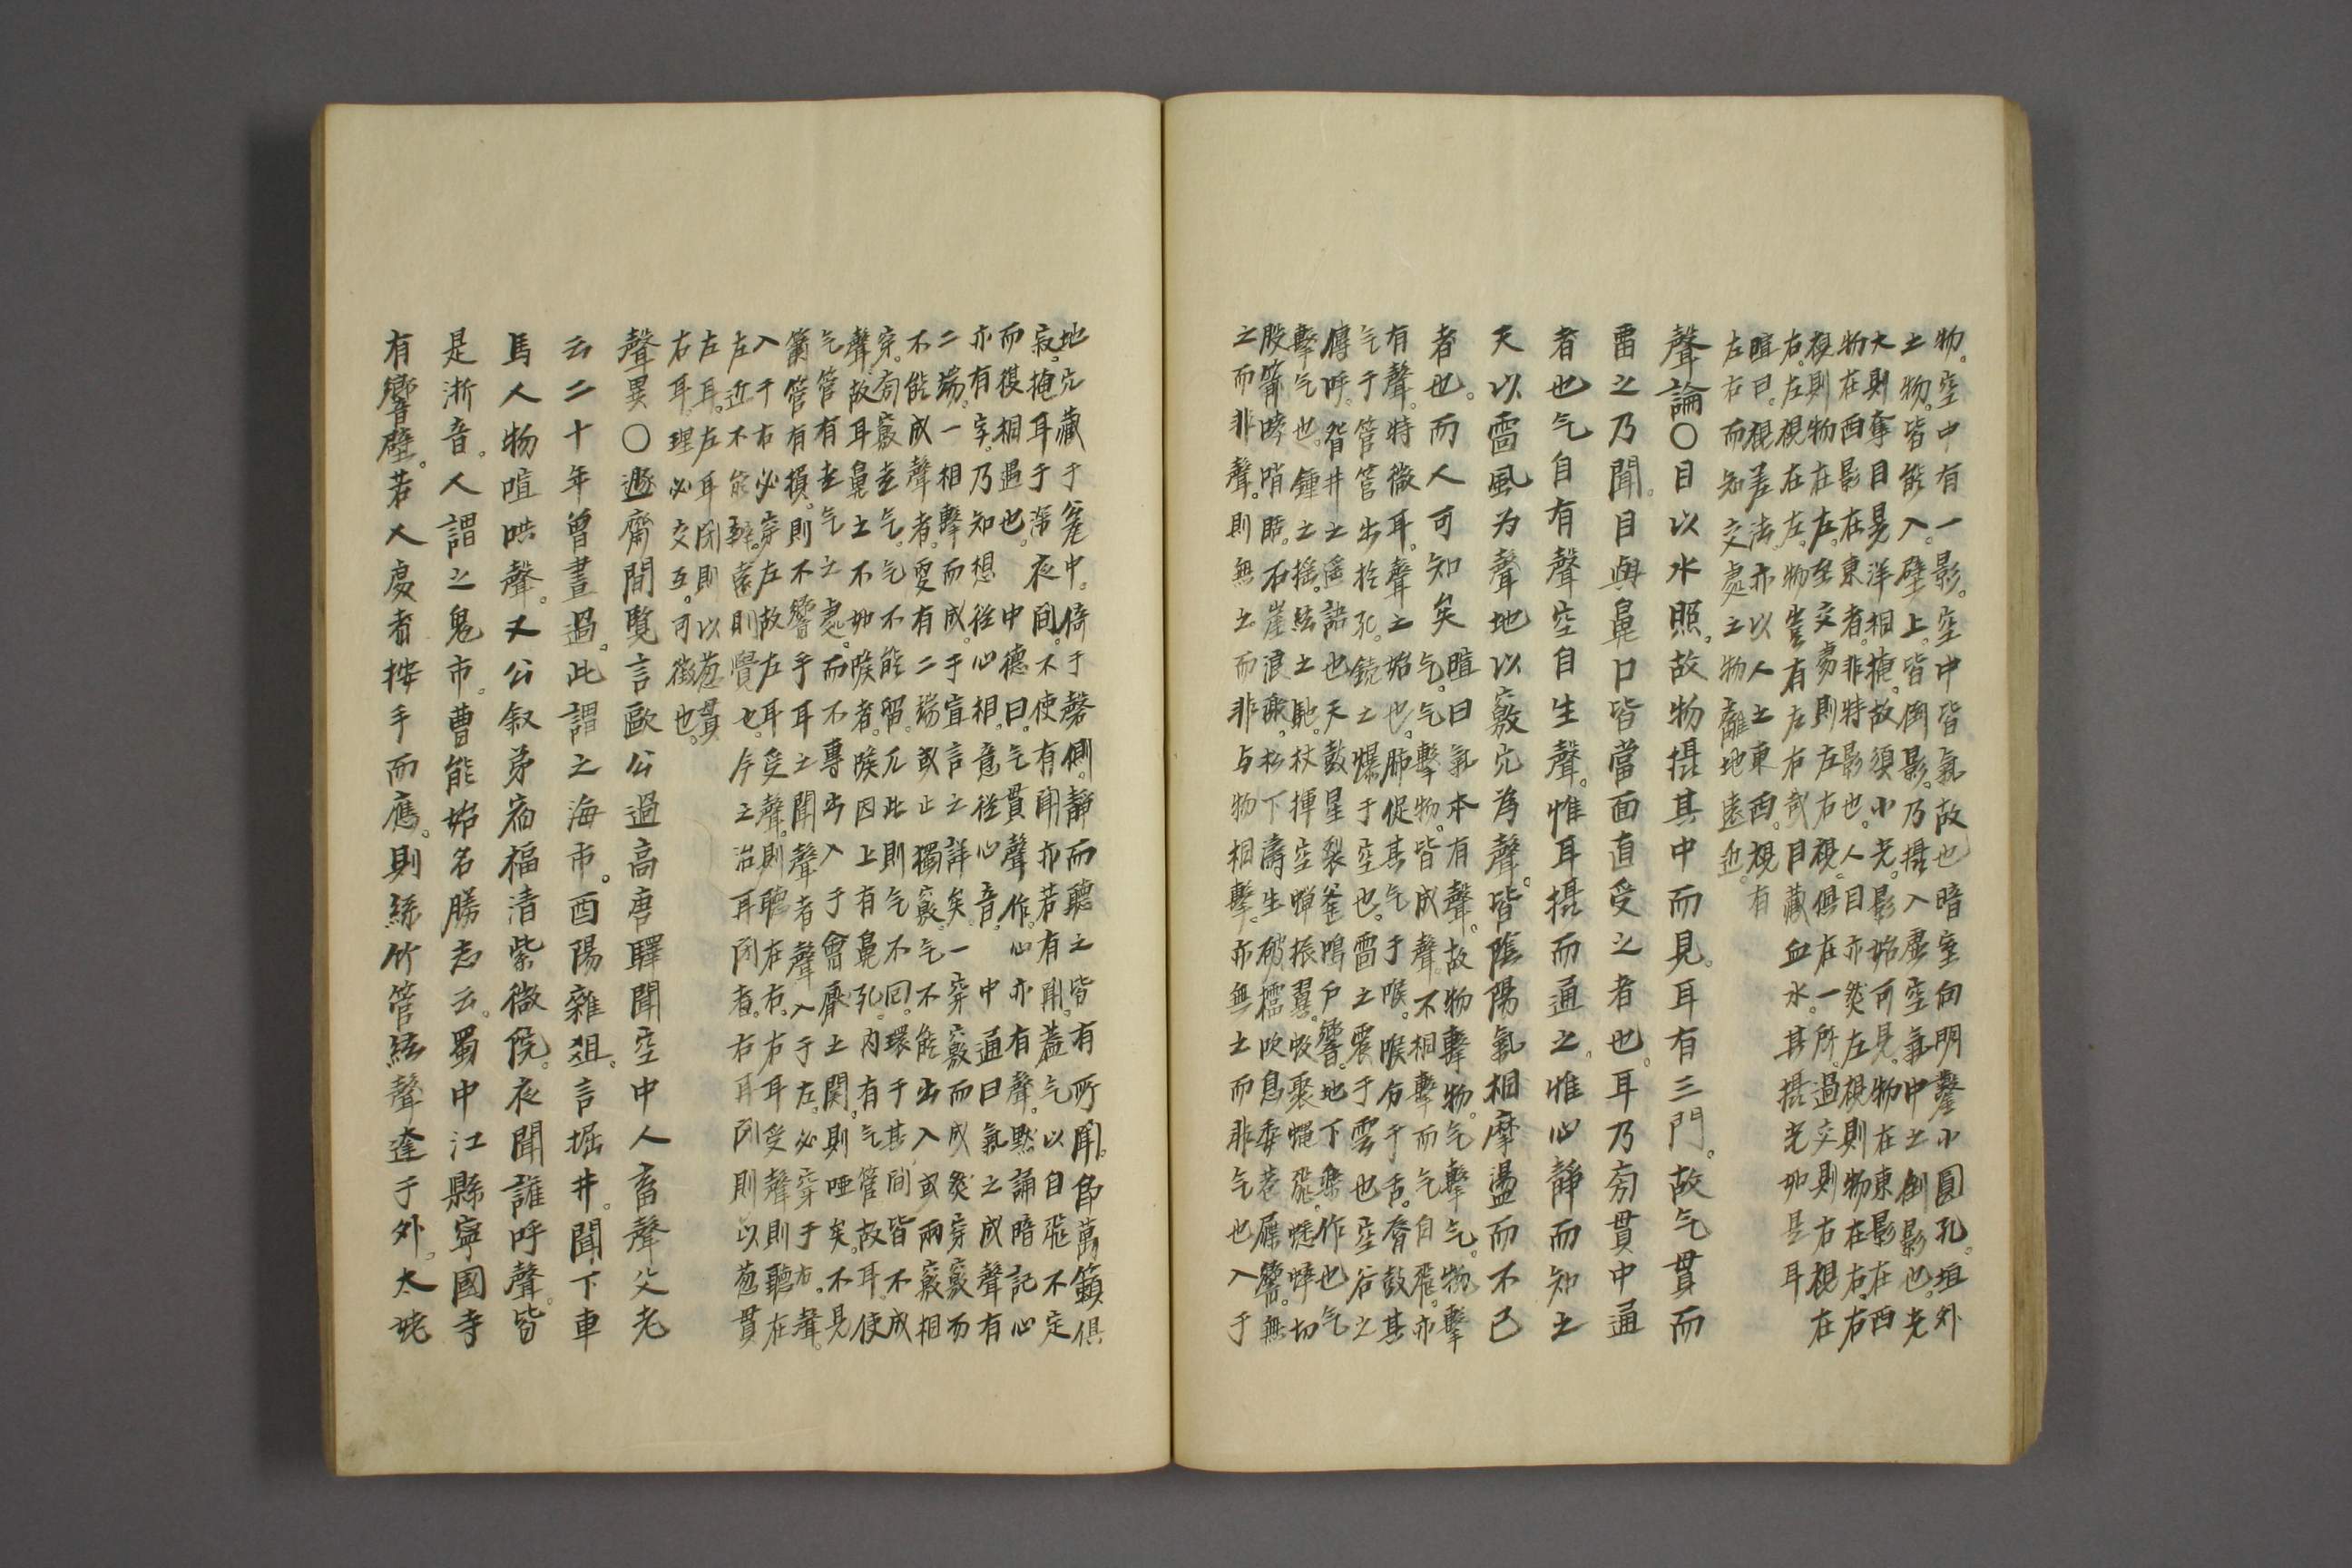 物。空中有一影。空中皆氣故也暗室向明鑿小圓孔。垣外
之物。皆能入。壁上。皆倒影。乃攝入虛空氣中之倒影也。光
大則奪目晃洋相掩。故須小光。影始可見。物在東影在西
物在西影在東者。非特影也。人目亦然左視則物在右。右
視則物在左。至交處則左右視。俱在一所。過交則右視在
右。左視在左。物豈有左右哉目藏血水。其攝光如是耳
暄曰。視差法。亦以人之東西。視有
左右而知交處之物離地遠近。
聲論〇目以水照。故物攝其中而見。耳有三門。故气貫而
雷之乃聞。目與鼻口皆當面直受之者也。耳乃旁貫中通
者也气自有聲空自生聲。惟耳攝而通之。惟心靜而知之
天以雷風为聲地以竅穴為聲。皆陰陽氣相摩盪而不已
者也。而人可知矣
暄曰氣本有聲。故物擊物。气擊气。物擊
气。气擊物。皆成聲。不相擊而气自飛。亦
有聲。特微耳。聲之始也。肺促其气于喉。喉台于舌。脊鼓其
气于管管出於孔。銃之爆于空也。雷之震于雲也空谷之
傳呼。眢井之遙語也天鼓星裂釜鳴戶響。地下樂作也气
擊气也。鐘之搖。絃之馳。杖揮空蟬振翼。蚊聚蝇飛。蟋蟀切
股簫哮哨肺。石崖浪濺。松下濤生破櫺吹息委若屧響。無
之而非聲。則無之而非与物相擊。亦無之而非气也入于
地穴藏于瓮中。倚于磬側。靜而聽之皆有所聞。即萬籟俱
寂。掩耳于深夜间。不使有聞亦若有聞。蓋气以自飛不定
而複相遇也。中德曰。气貫聲作。心亦有聲。默誦暗記心
亦有字。乃知想從心相。意從心音。中通曰氣之成聲有
二端。一相擊而成。于宜言之詳矣。一穿竅而成然穿竅而
不能成聲者。更有二端或止獨竅。气不能出入或兩竅相
穿。旁竅走气。气不能留。凡此則气不回環于其间皆不成
聲故耳鼻之不如喉者。喉因上有鼻孔。内有气管故耳。使
气管有走气之處。而不專出入于會厭之関。則哑矣。不見
簫管有損。則不響乎耳之聞聲者聲入于左。必穿于右。聲
入于右必穿左故左耳受聲。則聽在右。右耳受聲則聽在
左近不能辦。遠則覺也。今之治耳闭者。右耳闭則以葱貫
左耳。左耳闭則以葱貫
右耳。理必交互。可徵也。
聲異〇遯齋間覽言歐公過高唐驛聞空中人畜聲父老
云二十年曾晝過。此謂之海市。酉陽雜俎。言堀井。聞下車
馬人物喧哄聲。又公叙弟宿福清紫微院。夜聞誰呼聲。皆
是浙音。人謂之鬼市。曹能始名勝志云。蜀中江縣寧國寺
有響壁。若人處者按手而應。則絲竹管絃聲達于外。太姥